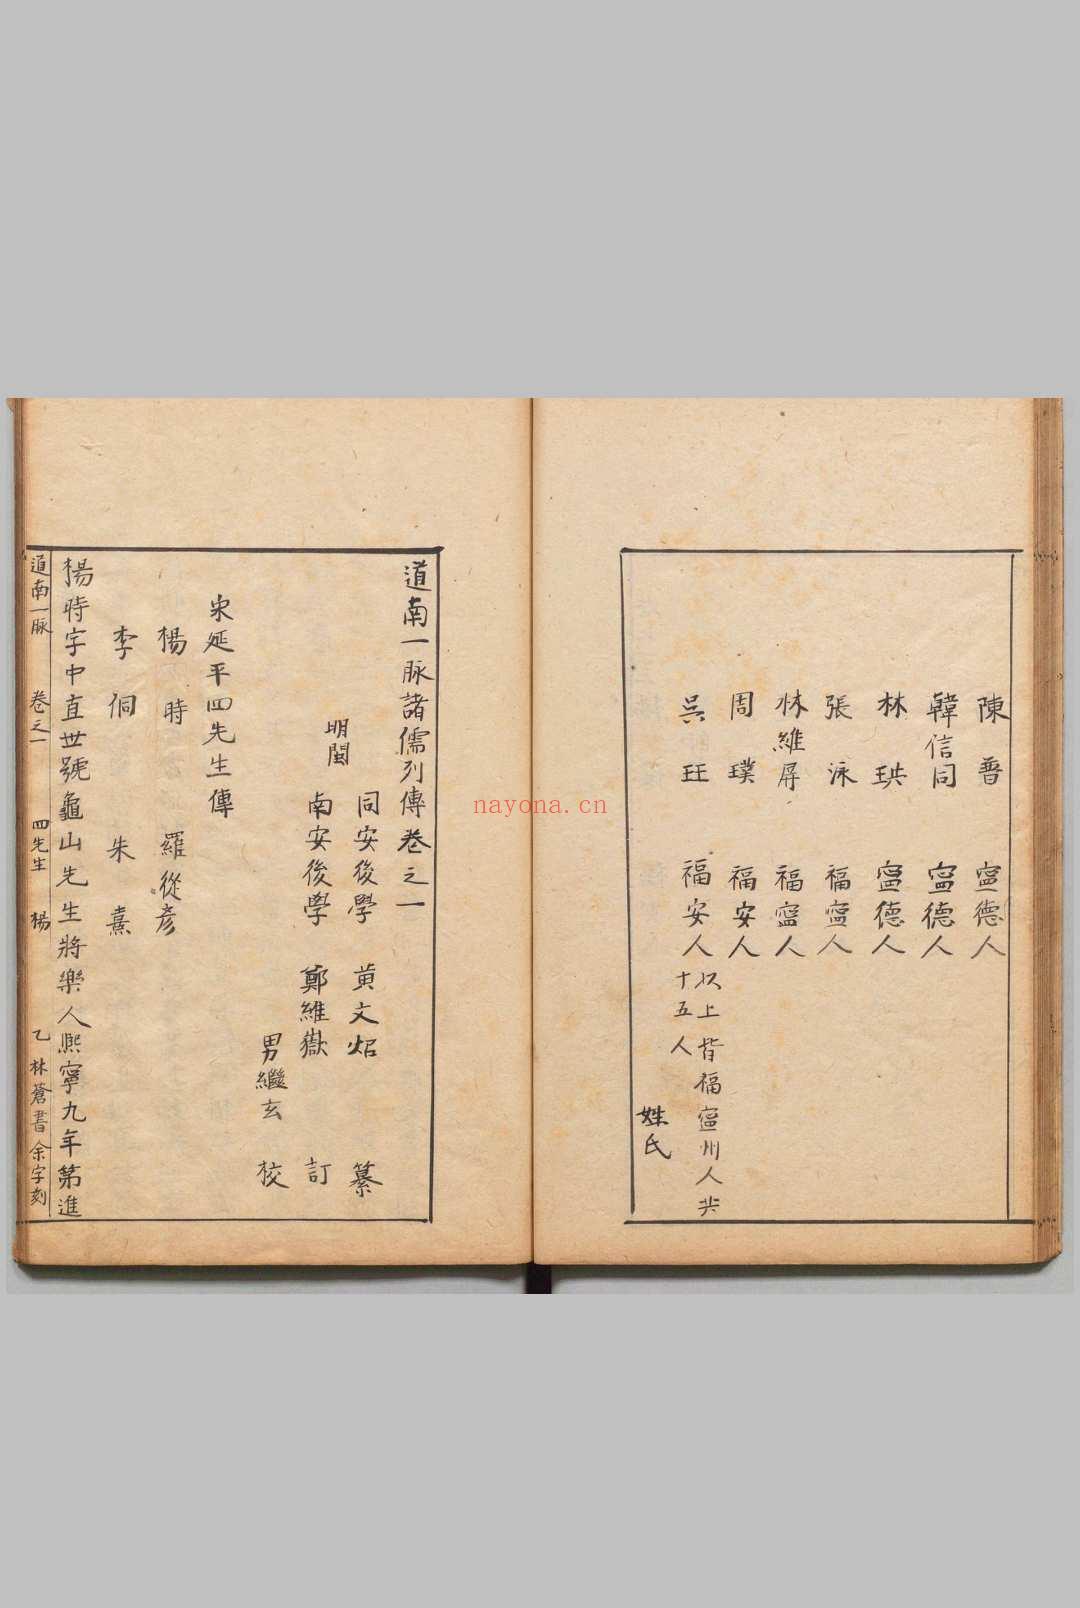 陳普　寧德人
韓信同　寧德人
林珙　寧德人
張泳　福寧人
林維屏　福寧人
周璞　福安人
吳玨　福安人
以上皆福寧州人共
十五人
姓氏
道南一脉諸儒列傳卷之一
明閩
同安後學　黄文炤　纂
南安後學　鄭維嶽　訂
男繼玄　校
宋延平四先生傳
楊時　羅從彥
李侗　朱熹
楊時字中直世號龜山先生將樂人熙寧九年第進
道南一脉　卷之一　四先生　楊　乙　林蒼書　余字刻
nayona.cn